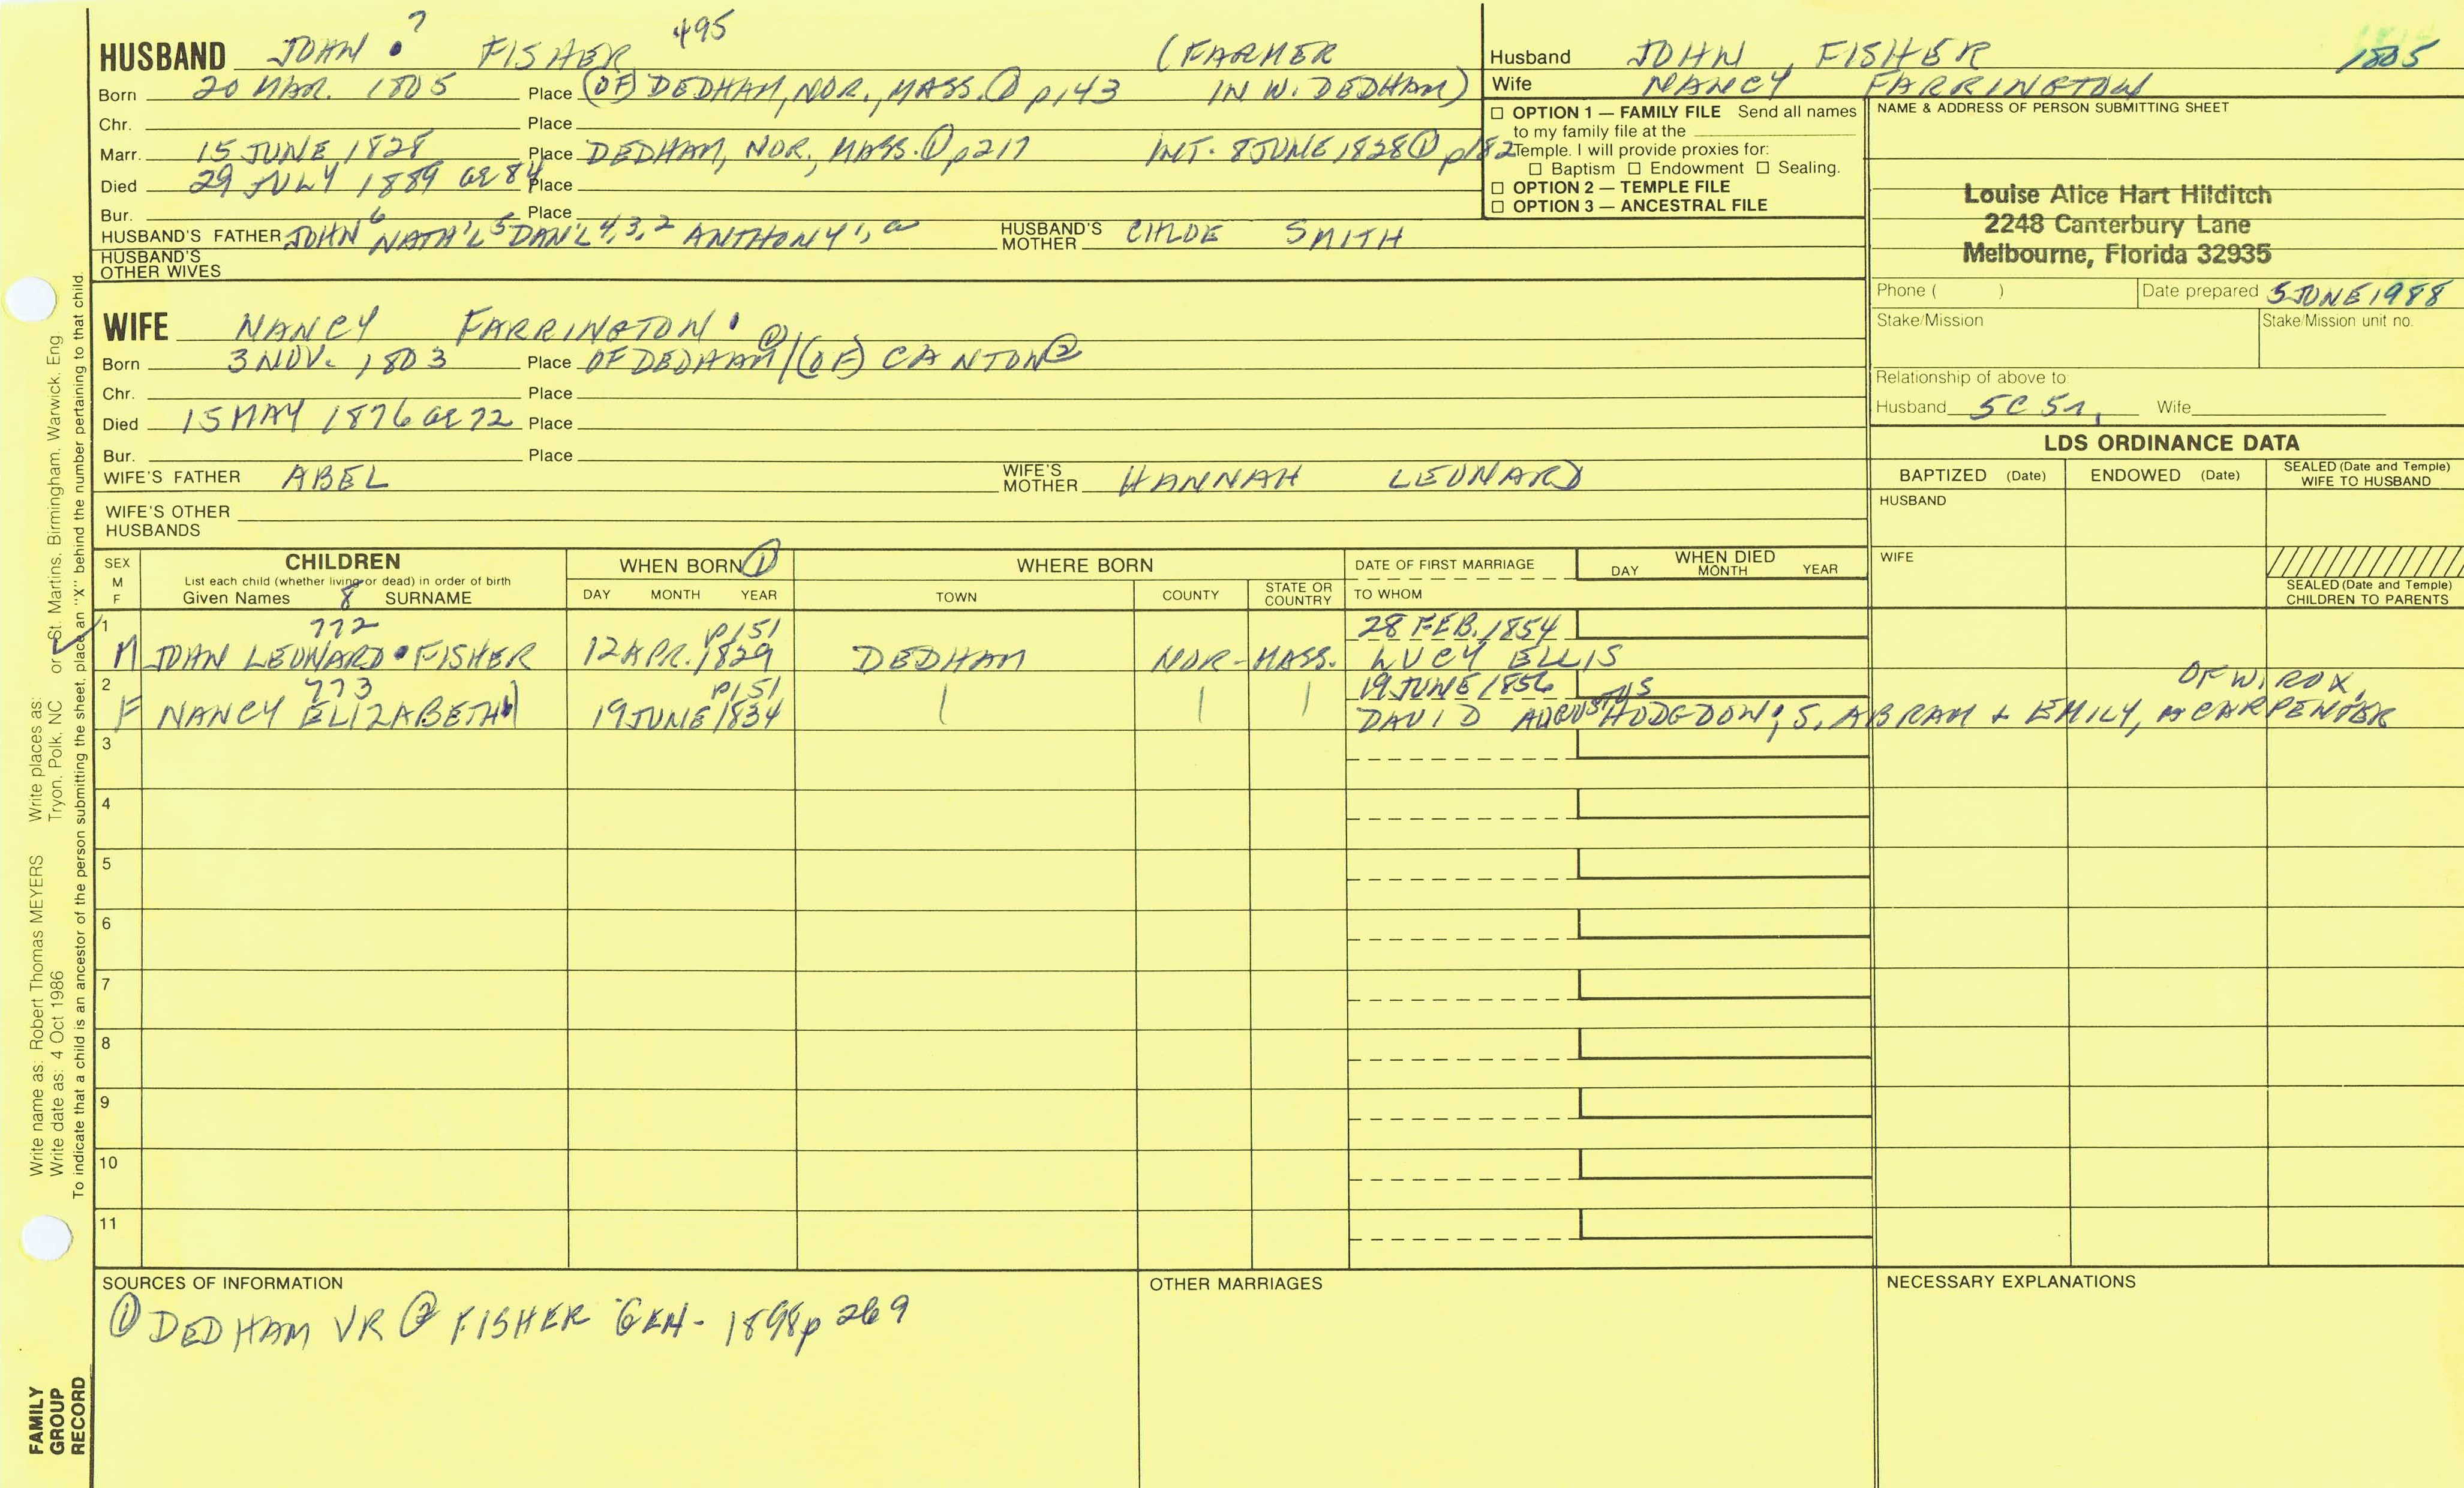 HUSBAND JOHN 7 FISHER 495 (FARMER
Born 20 MAR. 1805 Place (OF) DEDHAM, NOR., MASS. ① p143 IN W. DEDHAM)
Chr. Place
Marr. 15 JUNE 1828 Place DEDHAM, NOR., MASS. ① p217 INT. 8 JUNE 1828 ① p182
Died 29 JULY 1889 ae 84 Place
Bur. Place
HUSBAND'S FATHER JOHN 6 NATH'L 5 DAN'L 4, 3, 2 ANTHONY 1, a HUSBAND'S MOTHER CHLOE SMITH
HUSBAND'S OTHER WIVES
Husband JOHN FISHER 1805
Wife NANCY FARRINGTON
☐ OPTION 1 — FAMILY FILE Send all names
to my family file at the
Temple. I will provide proxies for:
☐ Baptism ☐ Endowment ☐ Sealing.
☐ OPTION 2 — TEMPLE FILE
☐ OPTION 3 — ANCESTRAL FILE
NAME & ADDRESS OF PERSON SUBMITTING SHEET
Louise Alice Hart Hilditch
2248 Canterbury Lane
Melbourne, Florida 32935
Phone ( ) Date prepared 5 JUNE 1988
Stake/Mission Stake/Mission unit no.
Relationship of above to:
Husband 5C 5r, Wife
WIFE NANCY FARRINGTON
Born 3 NOV. 1803 Place OF DEDHAM ① / (OF) CANTON ②
Chr. Place
Died 15 MAY 1876 ae 72 Place
Bur. Place
WIFE'S FATHER ABEL WIFE'S MOTHER HANNAH LEONARD
WIFE'S OTHER HUSBANDS
LDS ORDINANCE DATA
BAPTIZED (Date) ENDOWED (Date) SEALED (Date and Temple) WIFE TO HUSBAND
HUSBAND
WIFE
SEALED (Date and Temple) CHILDREN TO PARENTS
SEX M F
CHILDREN
List each child (whether living or dead) in order of birth
Given Names 8 SURNAME
WHEN BORN ①
DAY MONTH YEAR
WHERE BORN
TOWN COUNTY STATE OR COUNTRY
DATE OF FIRST MARRIAGE
TO WHOM
WHEN DIED
DAY MONTH YEAR
1 772 p151 28 FEB. 1854
M JOHN LEONARD FISHER 12 APR. 1829 DEDHAM NOR- MASS. LUCY ELLIS
2 773 p151 19 JUNE 1856 OF W. ROX,
F NANCY ELIZABETH 19 JUNE 1834 DAVID AUGUSTUS HODGDON; S. ABRAM + EMILY, CARPENTER
3
4
5
6
7
8
9
10
11
SOURCES OF INFORMATION
① DEDHAM VR ② FISHER GEN- 1898 p 269
OTHER MARRIAGES
NECESSARY EXPLANATIONS
Write name as: Robert Thomas MEYERS Write places as:
Write date as: 4 Oct 1986 Tryon, Polk, NC or St. Martins, Birmingham, Warwick, Eng.
To indicate that a child is an ancestor of the person submitting the sheet, place an "X" behind the number pertaining to that child.
FAMILY
GROUP
RECORD